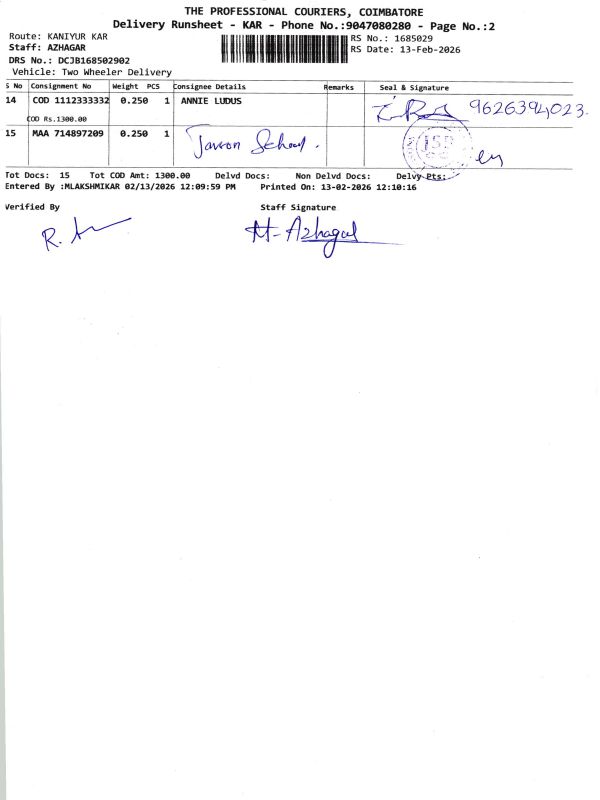 THE PROFESSIONAL COURIERS, COIMBATORE
Delivery Runsheet - KAR - Phone No.:9047080280 - Page No.:2
Route: KANIYUR KAR
RS No.: 1685029
Staff: AZHAGAR
RS Date: 13-Feb-2026
DRS No.: DCJB168502902
Vehicle: Two Wheeler Delivery
S No Consignment No Weight PCS Consignee Details Remarks Seal & Signature
14 COD 1112333332 0.250 1 ANNIE LUDUS 9626394023.
COD Rs.1300.00
15 MAA 714897209 0.250 1 School. JSP
Tot Docs: 15 Tot COD Amt: 1300.00 Delvd Docs: Non Delvd Docs: Delvy Pts:
Entered By :MLAKSHMIKAR 02/13/2026 12:09:59 PM Printed On: 13-02-2026 12:10:16
Verified By Staff Signature
M-Azhagal